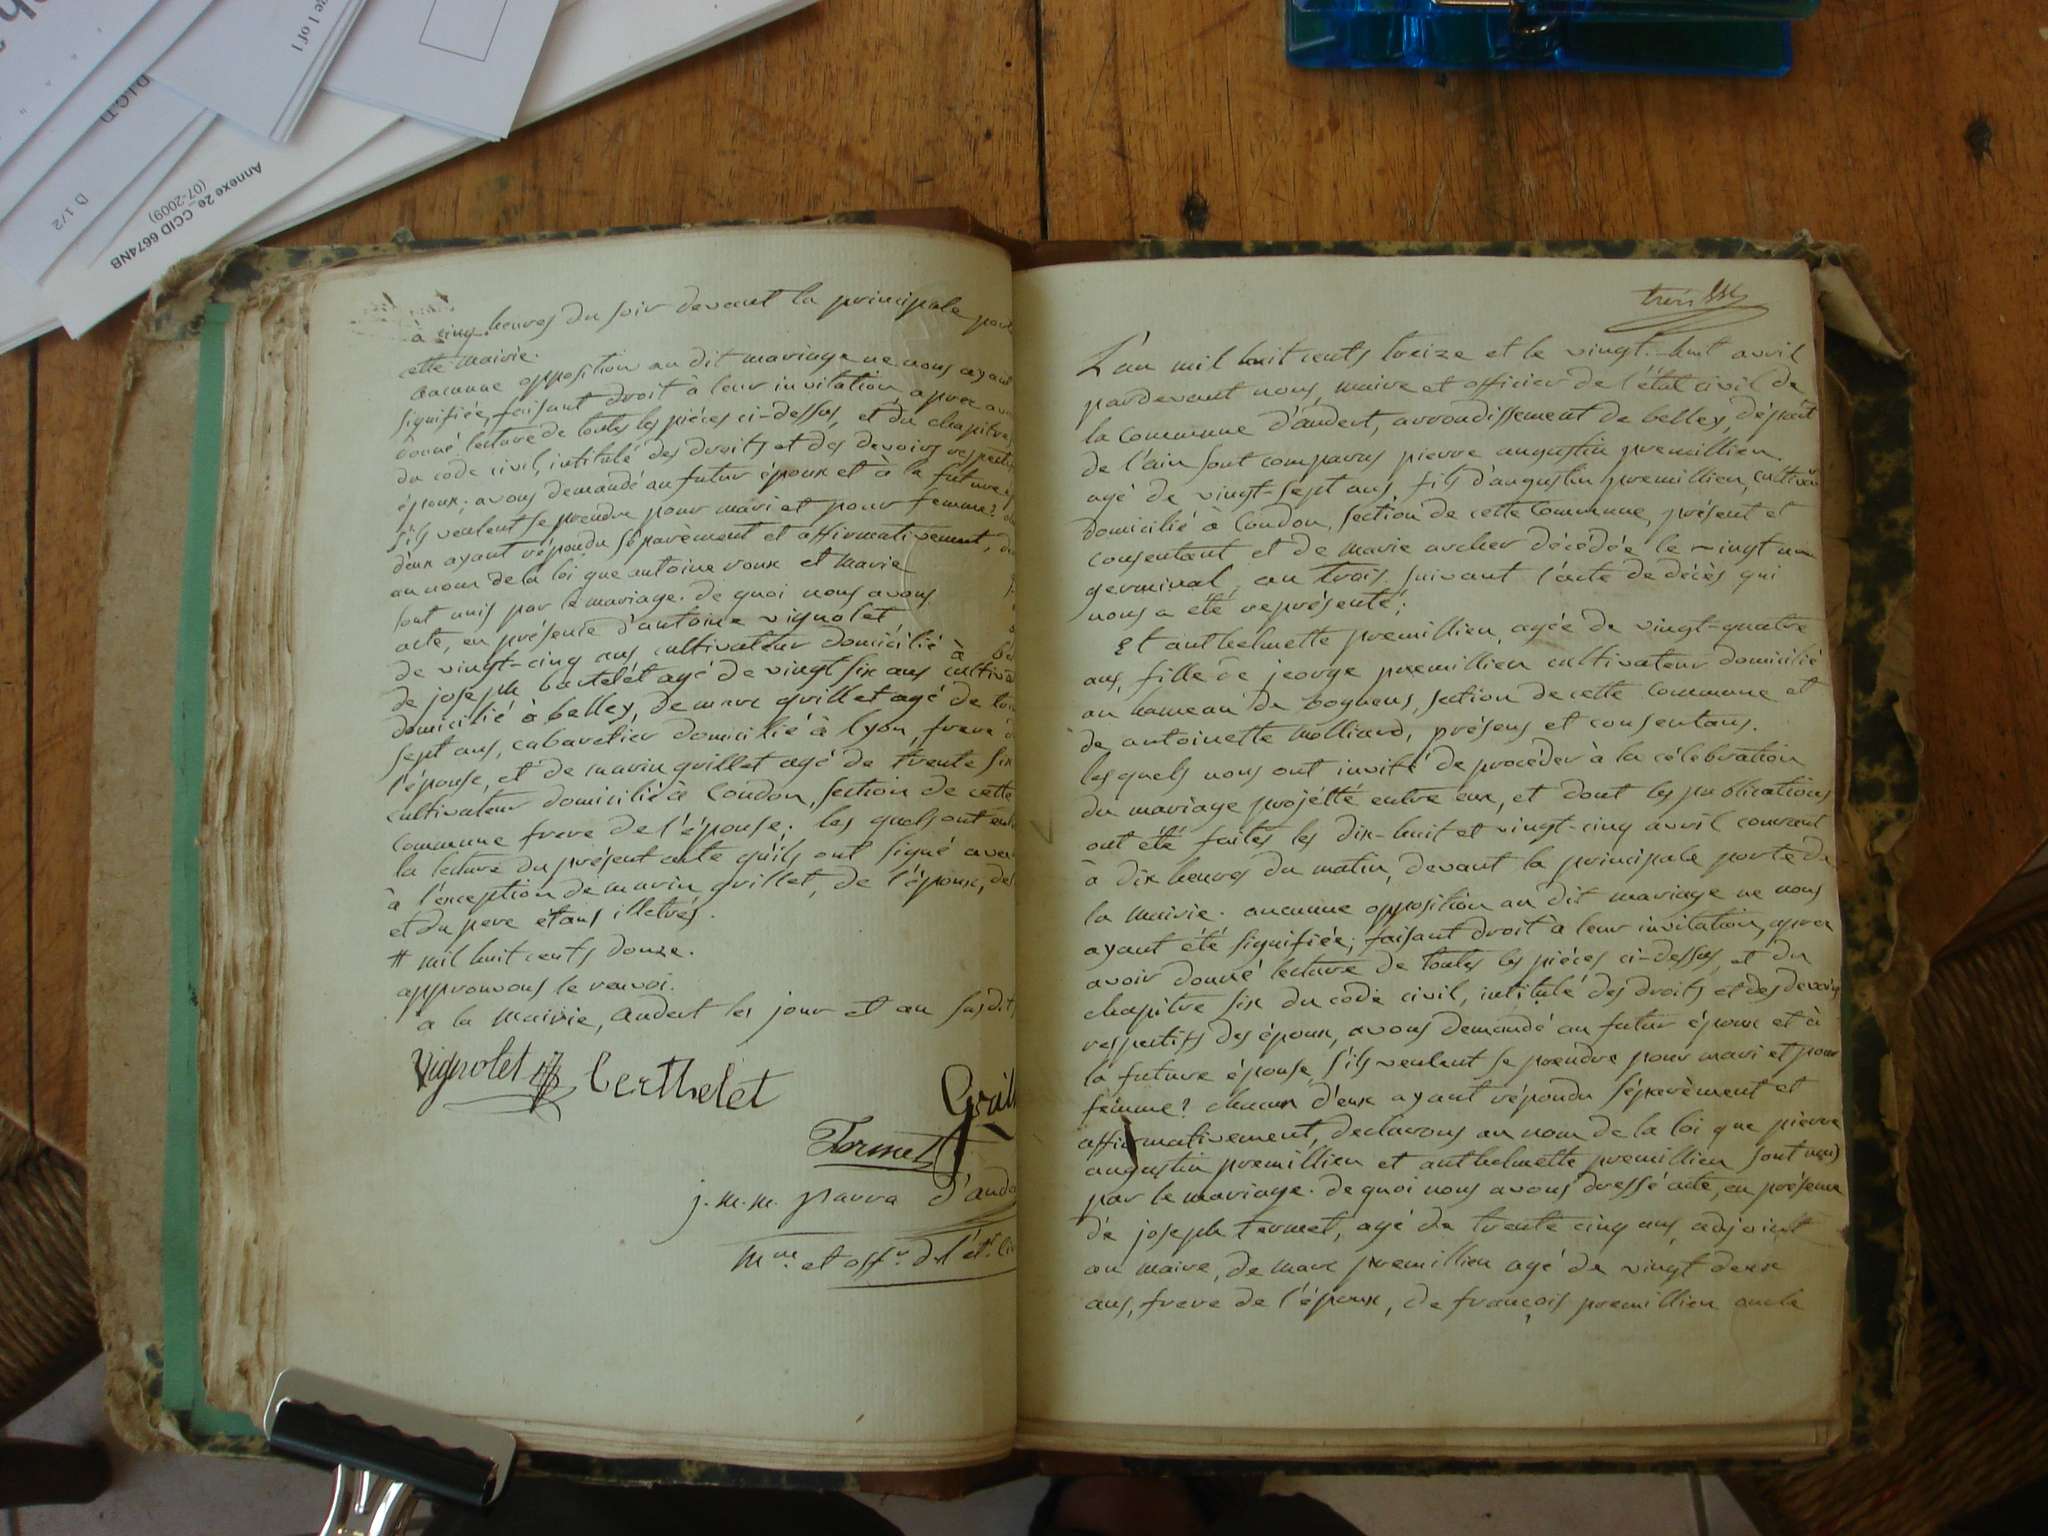 Page 1 of 1
D.I.C.T.
D 1/2
Annexe 2e_CCID 6674NB
(07-2009)
à cinq heures du soir devant la principale
cette mairie.
aucune opposition au dit mariage ne nous ayant
signifiée, faisant droit à leur invitation, aprer
donné lecture de toutes les piéces ci-dessus, et du chapitre
du code civil, intitulé des droits et des devoirs
époux; avons demandé au futur époux et à la future
s'ils veulent se prendre pour mari et pour femme?
d'eux ayant répondu séparèment et affirmativement,
au nom de la loi que antoine roux et marie
sont unis par le mariage. de quoi nous avons
acte, en présence d'antoine vignolet
de vingt-cinq ans cultivateur domicilié à
de joseph bartelét agé de vingt six ans
domicilié à belley, de marc grillet agé de
sept ans, cabaretier domicilié à lyon, frere
l'épouse, et de marin grillet agé de trente six
cultivateur domicilié à Condon, section de cette
commune frere de l'épouse; les quels ont
la lecture du présent acte qu'ils ont signé
à l'exception de marin grillet, de l'épouse,
et du pere étans illetrés.
# mil huit cents douze.
approuvons le renvoi.
à la mairie, andert les jour et an susdit
Vignolet Berthelet
Tormet
j. m. m. parra d'and
m.re et off.r de l'ét. ci
trois
L'an mil huit cents treize et le vingt-huit avril
pardevant nous, maire et officier de l'état civil de
la commune d'andert, arrondissement de belley, départ
de l'ain sont comparus pierre augustin premillieu
agé de vingt-sept ans, fils d'augustin premillieu,
domicilié à Condon, section de cette commune, présent et
consentant et de marie archer décédée le vingt
germinal, an trois suivant l'acte de décès qui
nous a été représenté;
Et anthelmette premillieu, agée de vingt-quatre
ans, fille de jeorge premillieu cultivateur domicilié
au hameau de bognens, section de cette commune et
de antoinette Molliard, présens et consentans.
les quels nous ont invité de procéder à la célébration
du mariage projétté entre eux, et dont les publications
ont été faites les dix-huit et vingt-cinq avril courant
à dix heures du matin, devant la principale porte de
la mairie. aucunne opposition au dit mariage ne nous
ayant été signifiée; faisant droit à leur invitation, aprer
avoir donné lecture de toutes les piéces ci-dessus, et du
chapitre six du code civil, intitulé des droits et des devoirs
respectifs des époux, avons demandé au futur époux et à
la future épouse, s'ils veulent se prendre pour mari et pour
femme? chacun d'eux ayant répondu séparèment et
affirmativement, declarons au nom de la loi que pierre
augustin premillieu et anthelmette premillieu sont unis
par le mariage. de quoi nous avons dressé acte, en présence
de joseph termet, agé de trente cinq ans, adjoint
au maire, de marc premillieu agé de vingt deux
ans, frere de l'époux, de françois premillieu oncle